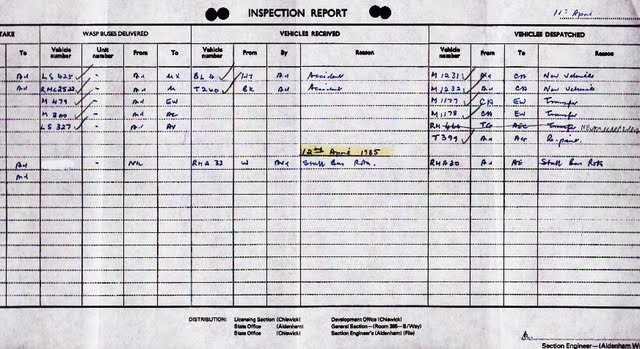 INSPECTION REPORT
11th April
TAKE WASP BUSES DELIVERED VEHICLES RECEIVED VEHICLES DESPATCHED
To Vehicle number Unit number From To Vehicle number From By Reason Vehicle number From To Reason
Ad LS 425 - Ad UX BL 4 Ad Accident M 1231 Ad CA New Vehicle
Ad RML2522 - Ad U T 240 BK Ad Accident M 1232 Ad CA New Vehicle
M 479 - Ad EW M 1177 CA EW Transfer
M 300 - Ad AC M 1178 CA EW Transfer
LS 327 - Ad AV Transfer
T 399 Ad Re-paint
12th April 1985
Ad - RMA 33 W Staff Bus Rota. RMA 20 Ad AE Staff Bus Rota
Ad
DISTRIBUTION: Licensing Section (Chiswick) Development Office (Chiswick)
State Office (Aldenham) General Section - (Room 395 - B/Way)
State Office (Chiswick) Section Engineer's (Aldenham) (File)
Section Engineer-(Aldenham W